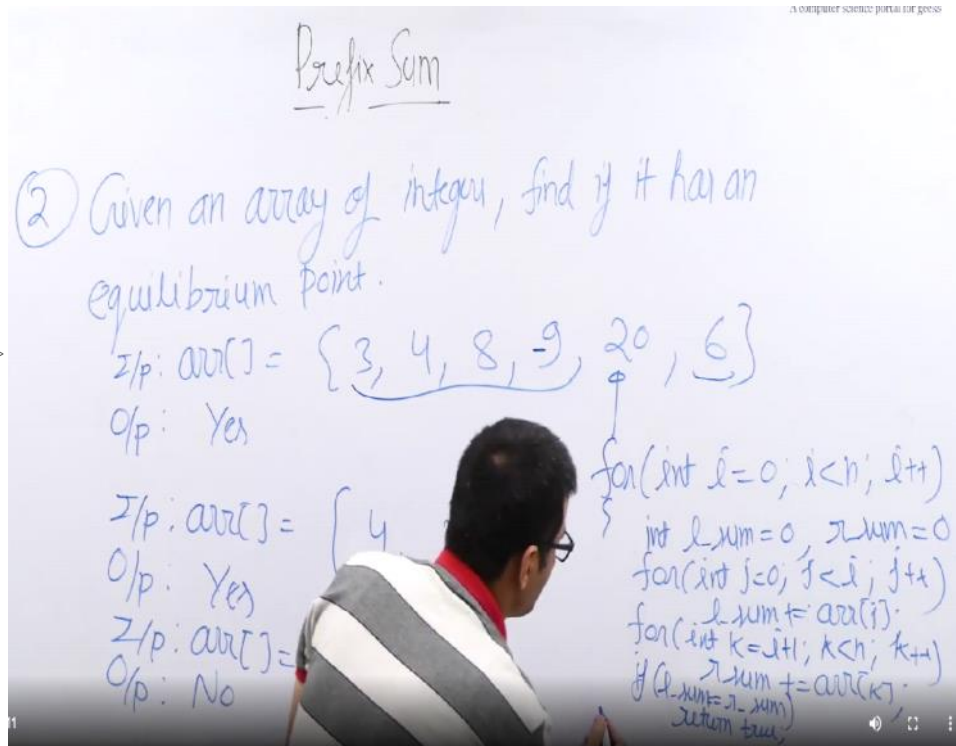 A computer science portal for geeks
Prefix Sum
② Given an array of integer, find if it has an
equilibrium point.
I/p: arr[] = {3, 4, 8, -9, 20, 6}
O/p: Yes
I/p: arr[] = { 4
O/p: Yes
I/p: arr[] =
O/p: No
for(int i=0; i<n; i++)
{
int l_sum=0, r_sum=0
for(int j=0; j<i; j++)
l_sum += arr[j];
for(int k=i+1; k<n; k++)
r_sum += arr[k];
if(l_sum==r_sum)
return true;
11